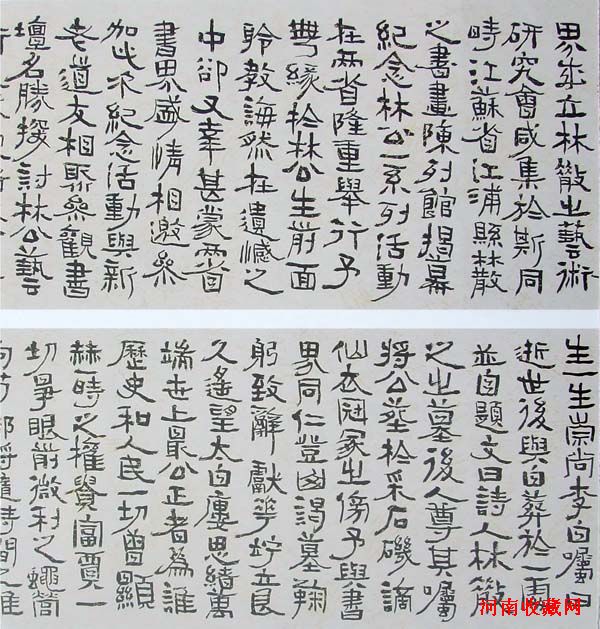 界成立林散之藝術
研究會咸集於斯同
時江蘇省江浦縣林散
之書畫陳列館揭幕
紀念林公一系列活動
在兩省隆重舉行予
無緣於林公生前面
聆教誨然在遺憾之
中卻又幸甚蒙兩省
書界盛情相邀參
加此次紀念活動與新
老道友相聚參觀書
壇名勝探討林公藝
生一生崇尚李白囑曰
逝世後與白葬於一處
並自題文曰詩人林散
之之墓後人尊其囑
將公墓於采石磯謫
仙衣冠冢之傍予與書
界同仁登謁墓鞠
躬致辭獻花竚立良
久遙望太白廔思緒萬
端世上最公正者為誰
歷史和人民一切曾顯
赫一時之權貴富賈一
切爭眼前微利之蠅營
河南收藏网